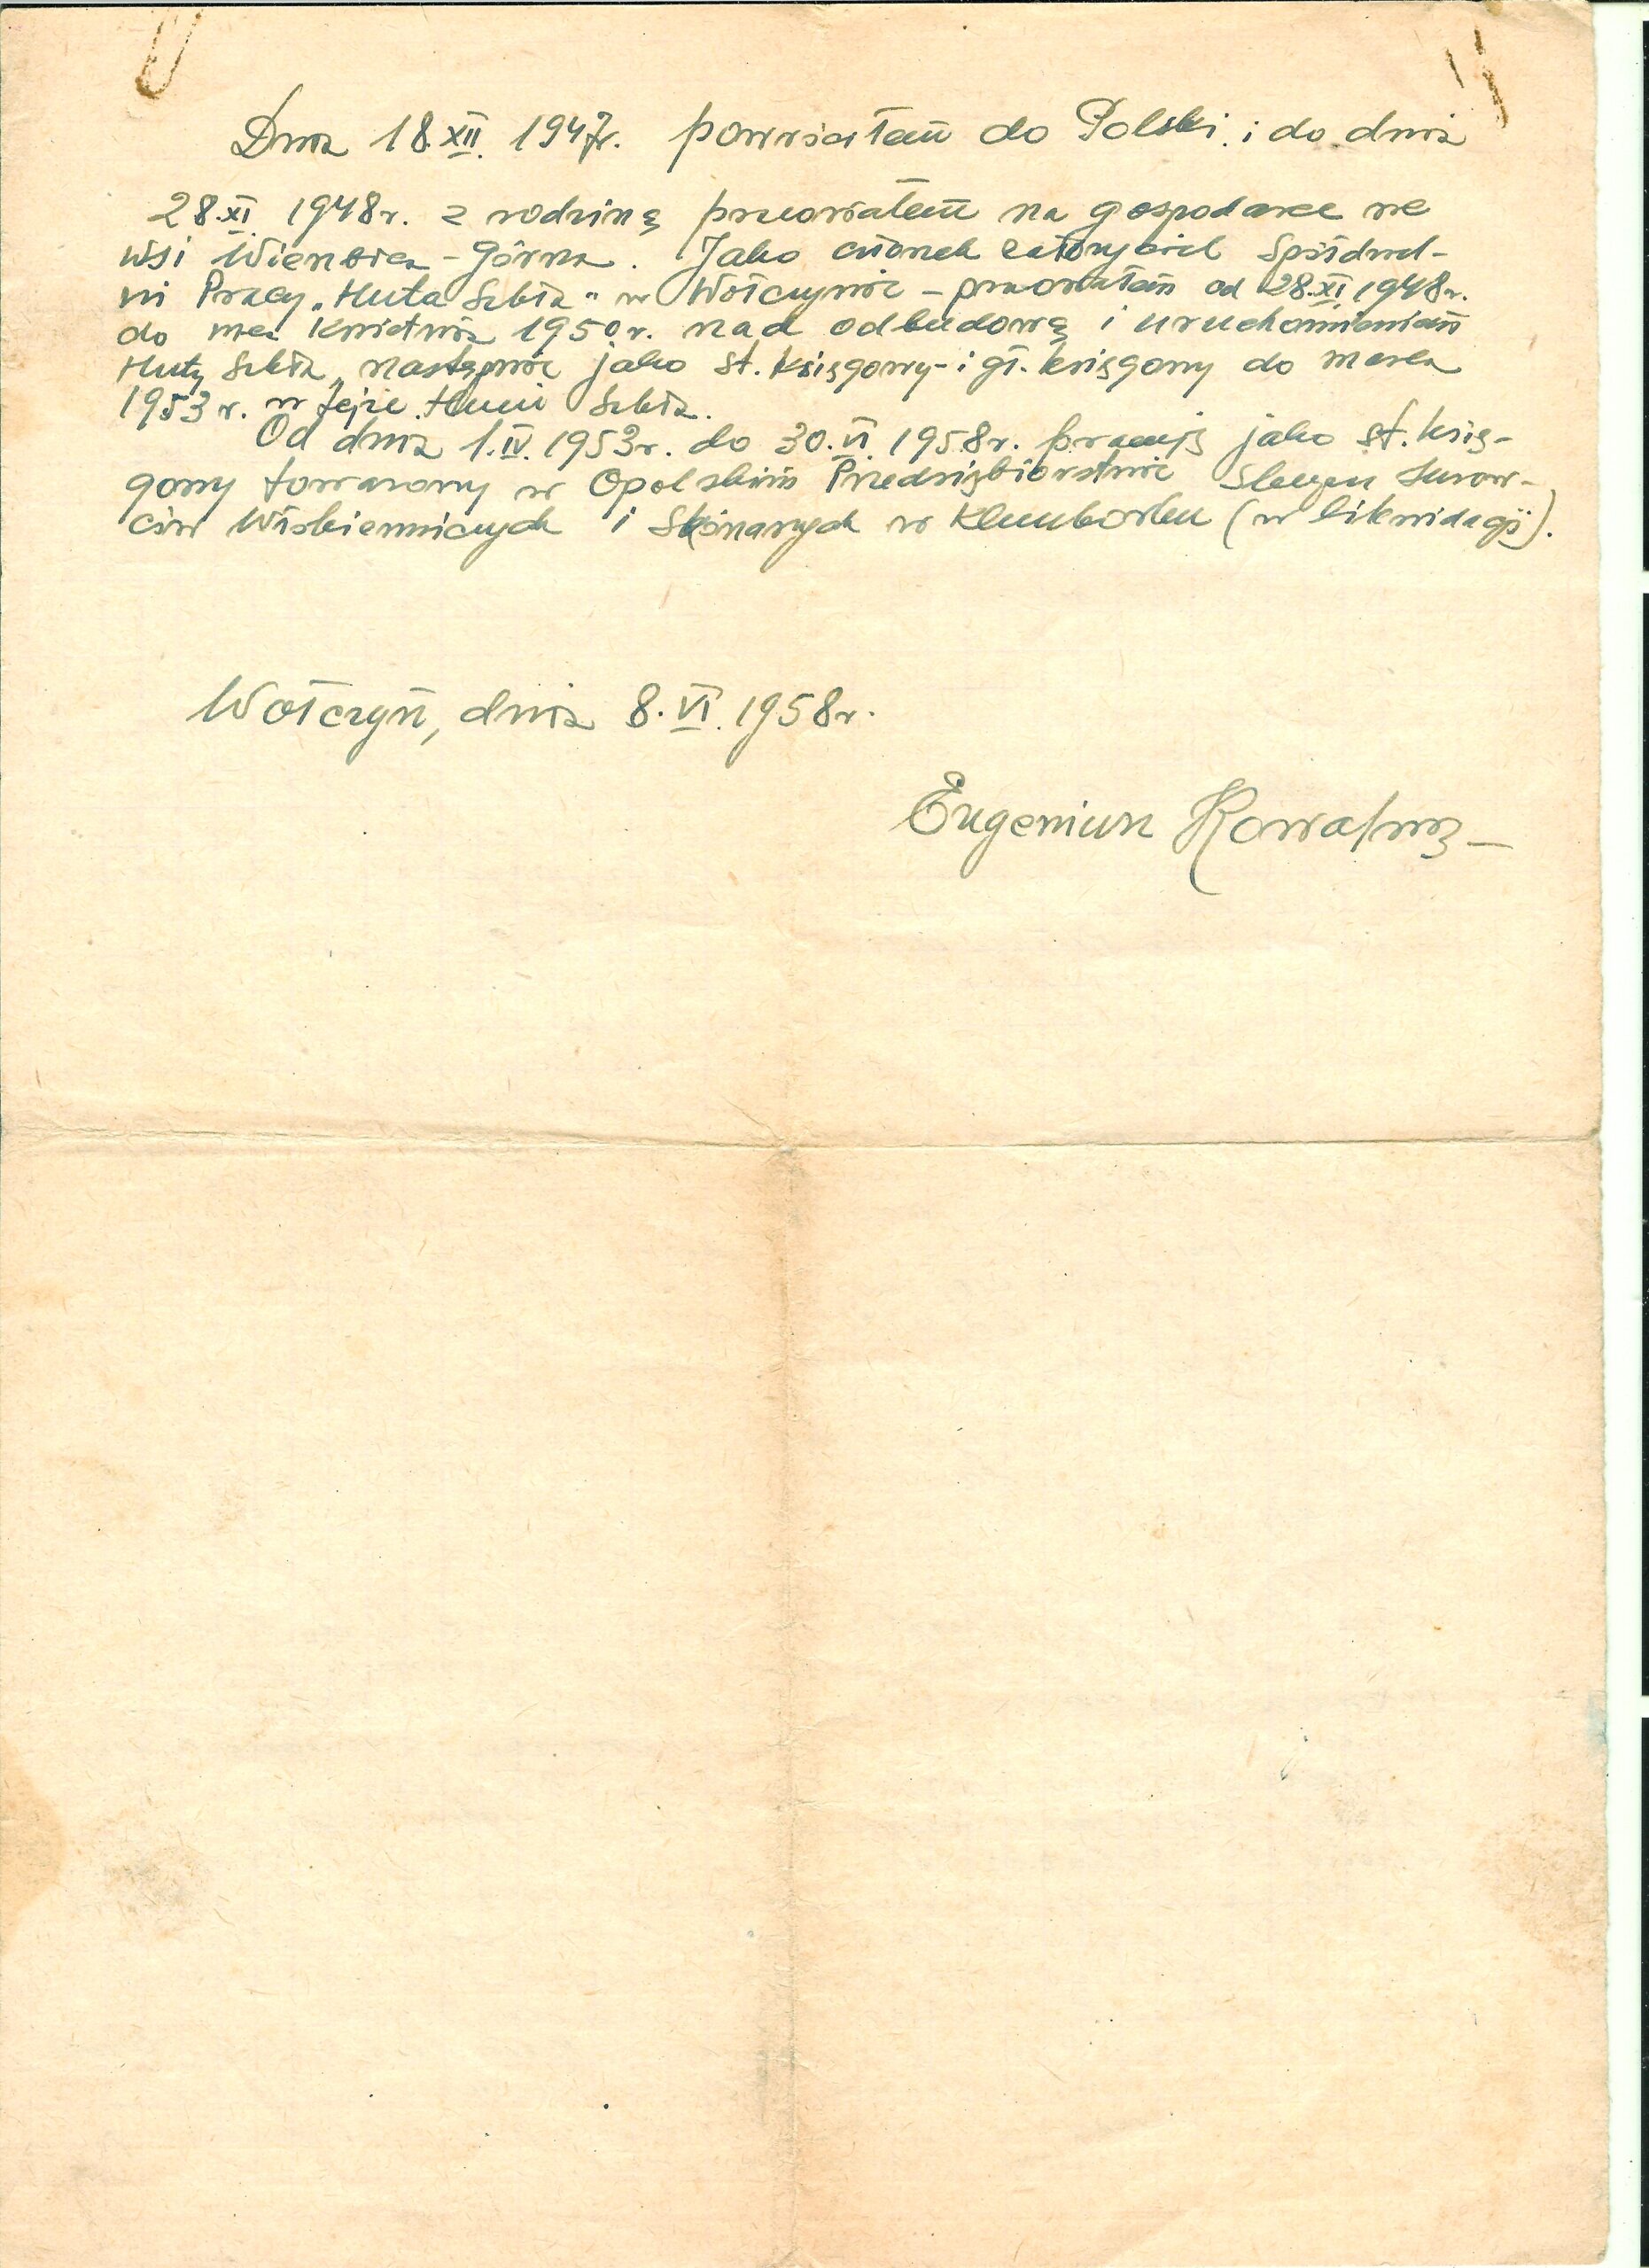 Dnia 18.XII. 1947r. powróciłem do Polski i do dnia
28.XI. 1948r. z rodziną pracowałem na gospodarce we
wsi Wierzbica-Górna. Jako członek założyciel Spółdziel-
ni Pracy „Huta Szkła" w Wołczynie - pracowałem od 28.XI 1948r.
do m-ca kwietnia 1950r. nad odbudową i uruchomieniem
Huty Szkła, następnie jako st. księgowy i gł. księgowy do marca
1953r. w tejże Hucie Szkła.
Od dnia 1.IV. 1953r. do 30.VI. 1958r. pracuję jako st. księ-
gowy towarowy w Opolskim Przedsiębiorstwie Skupu Surow-
ców Włókienniczych i Skórzanych w Kluczborku (w likwidacji).
Wołczyn, dnia 8.VI. 1958r.
Eugeniusz